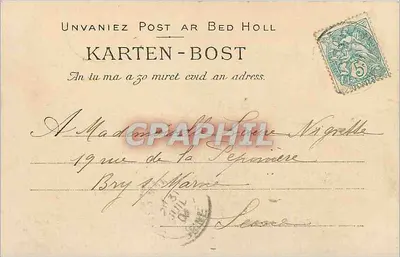 Unvaniez Post ar Bed Holl
KARTEN-BOST
An tu ma a zo miret evid an adress.
CPAPHIL
A Mademoiselle Nigrette
19 rue de la Pépinière
Bry s/ Marne
Seine
5